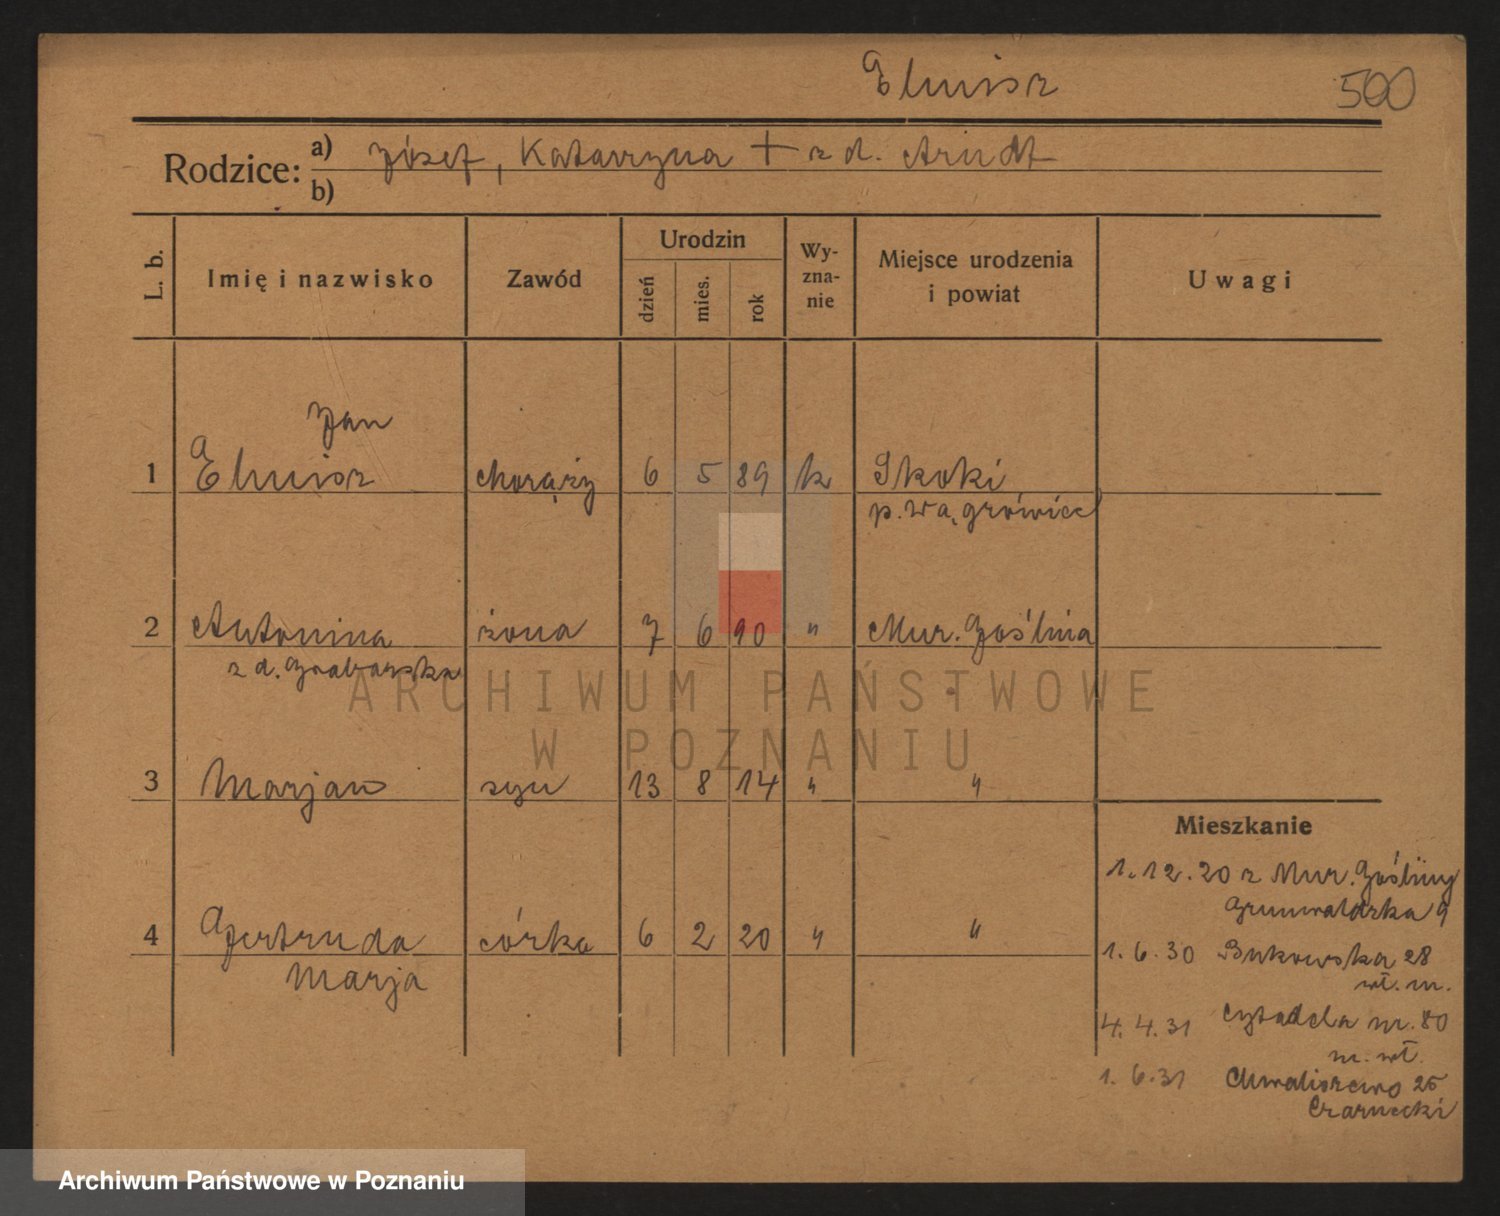 Elmisz 500
Rodzice: a) Józef, Katarzyna + z d. Arndt
b)
L. b. Imię i nazwisko Zawód Urodzin dzień mies. rok Wyznanie Miejsce urodzenia i powiat Uwagi
Jan
1 Elmisz chorąży 6 5 89 k Skoki
p. Wągrówiec
2 Antonina żona 7 6 90 " Mur. Goślina
z d. Grabarska
3 Marjan syn 13 8 14 " "
Mieszkanie
1.12.20 z Mur. Gośliny
Grunwaldzka 9
4 Gertruda córka 6 2 20 " "
Marja
1.6.30 Bukowska 28
wł. m.
4.4.31 Cytadela nr. 80
m. wł.
1.6.31 Chwaliszewo 25
Czarnecki
ARCHIWUM PAŃSTWOWE
W POZNANIU
Archiwum Państwowe w Poznaniu